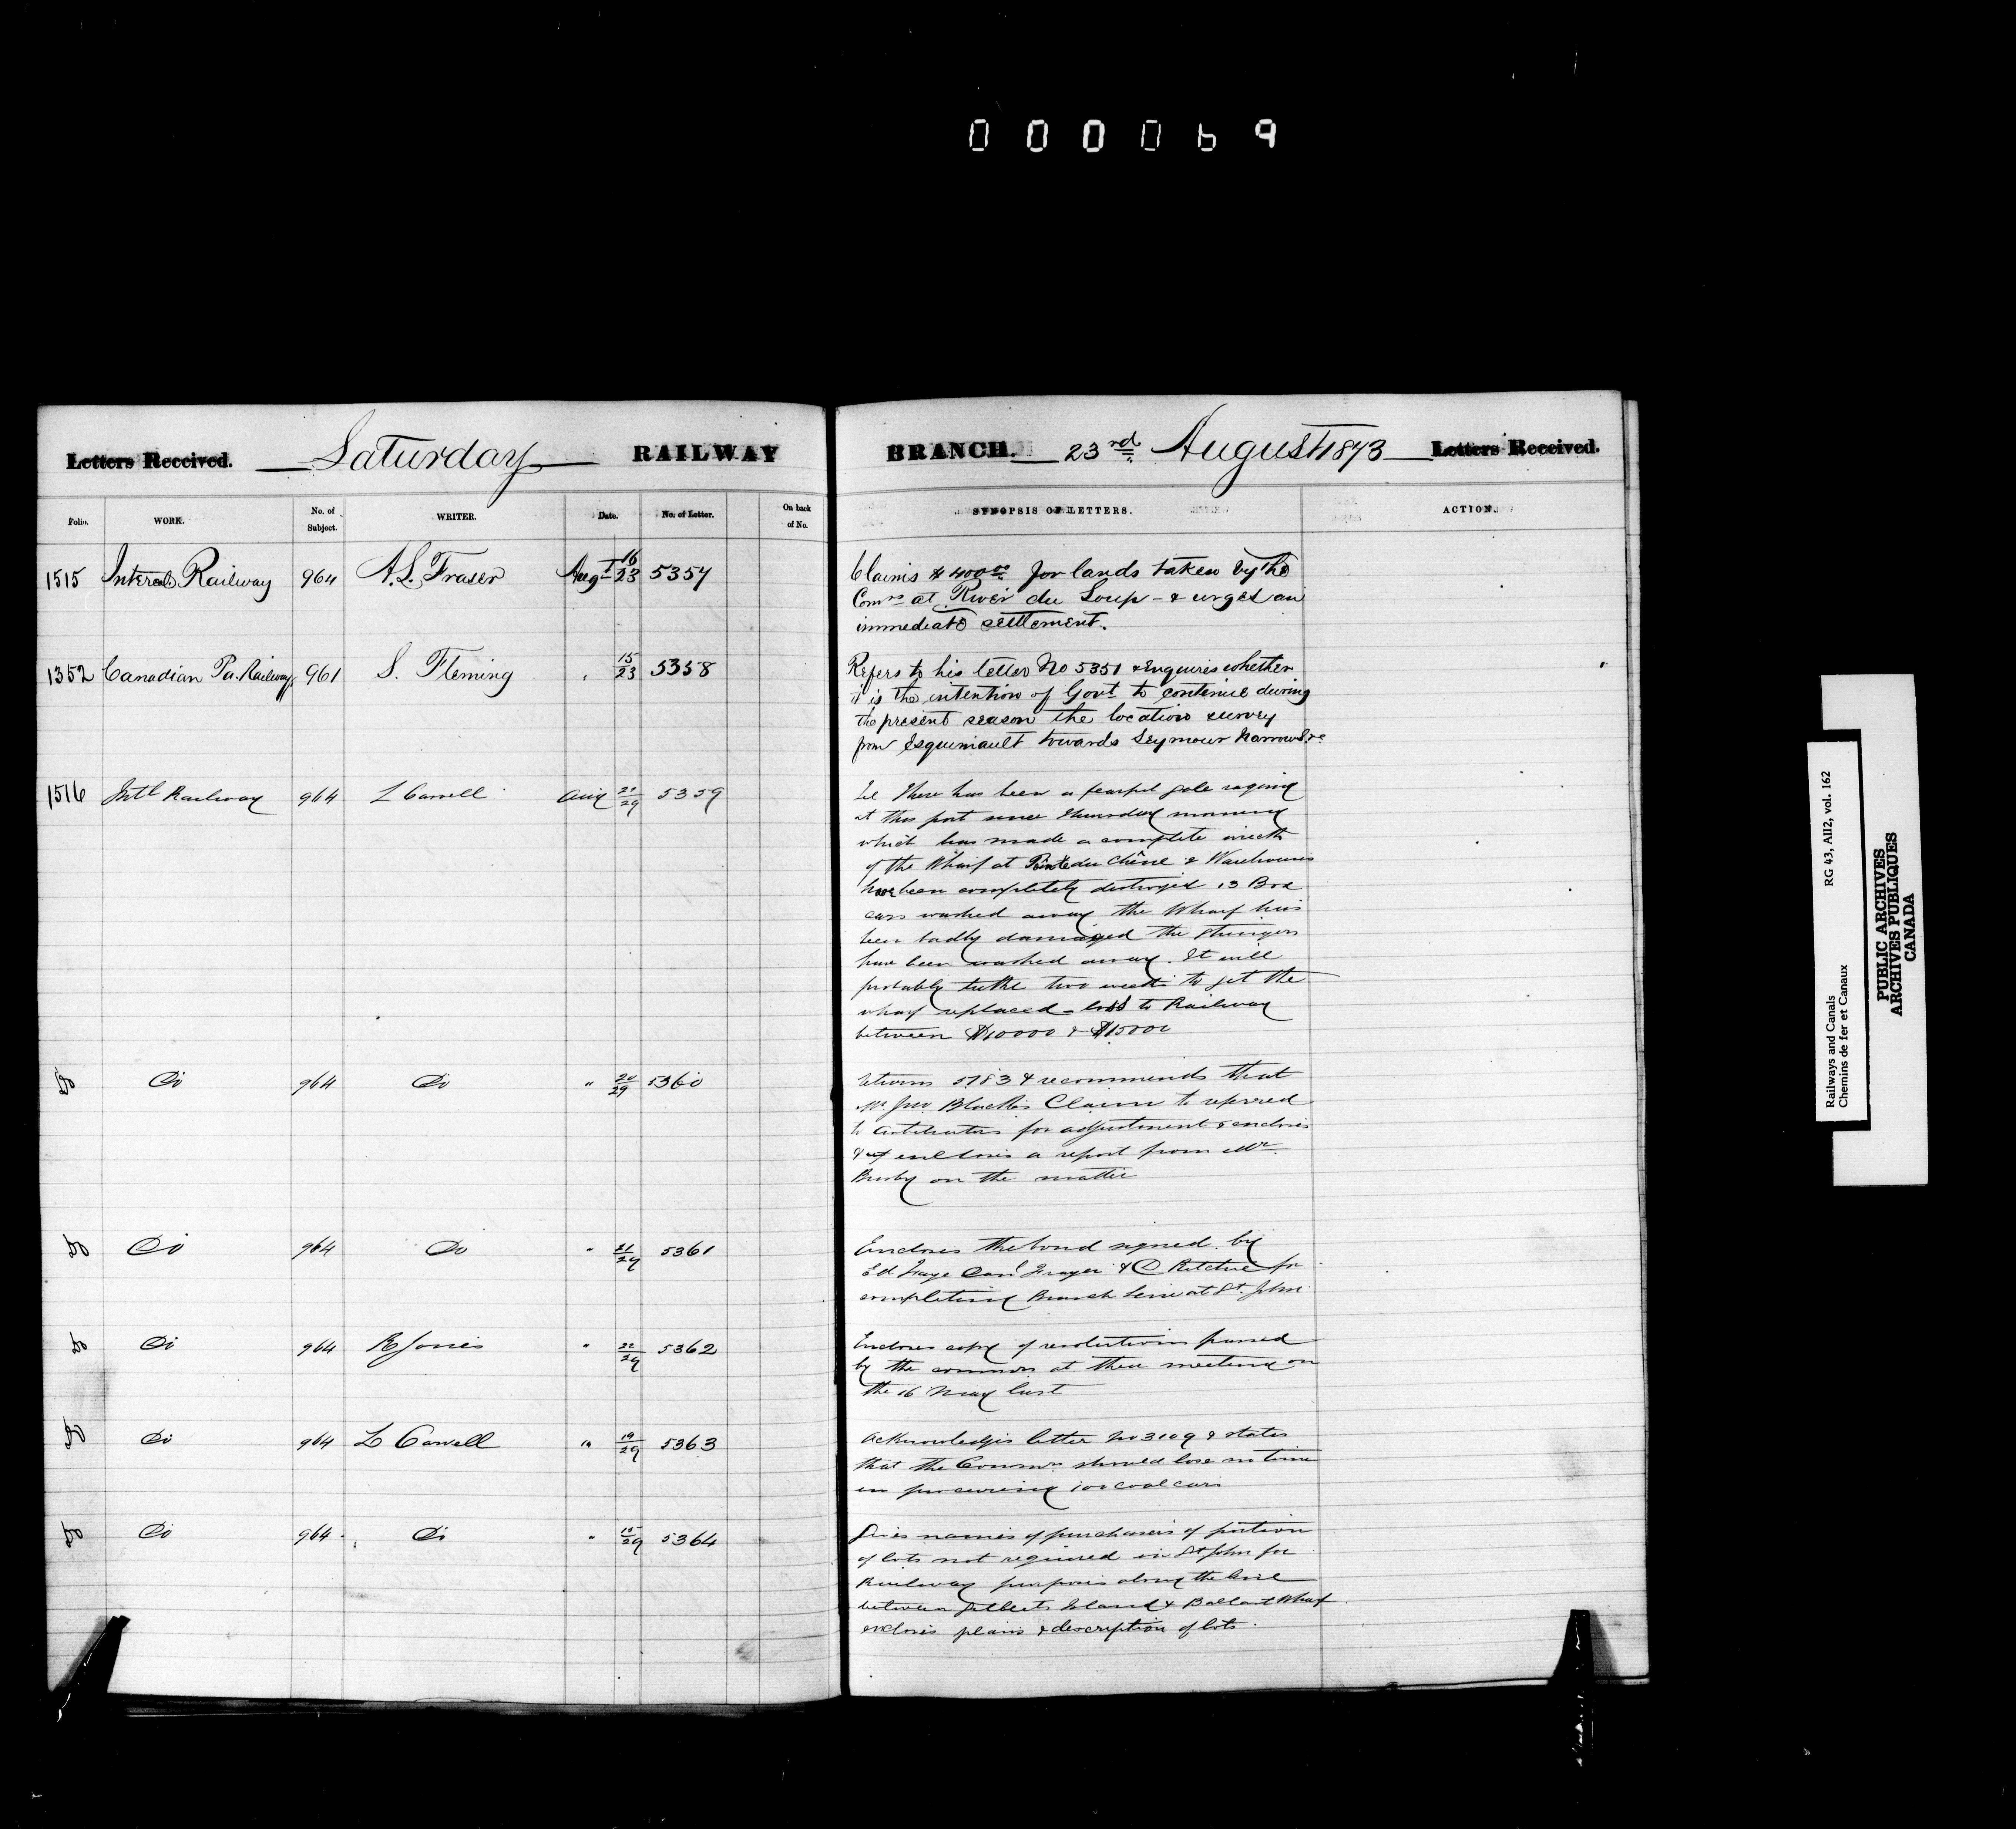 000069
Letters Received. Saturday RAILWAY BRANCH. 23rd August 1873 Letters Received.
Folio. WORK. No. of Subject. WRITER. Date. No. of Letter. On back of No. SYNOPSIS OF LETTERS. ACTION.
1515 Intercol. Railway 964 A.L. Fraser Augt 16/23 5357
Claims $400.00 for lands taken by the
Comrs at River du Loup - & urges an
immediate settlement.
1352 Canadian Pa. Railway 961 S. Fleming " 15/23 5358
Refers to his letter No 5351 & enquires whether
it is the intention of Govt to continue during
the present season the location survey
from Esquimault towards Seymour Narrows &c
1516 Intl Railway 964 L Carvell Aug 29 5359
Tel There has been a fearful gale raging
at this port since Thursday morning
which has made a complete wreck
of the Wharf at Pointe du Chêne & Warehouses
have been completely destroyed 13 Box
cars washed away the Wharf has
been badly damaged the Stringers
have been washed away. It will
probably take two weeks to get the
wharf replaced - loss to Railway
between $10000 & $15000
Do Do 964 Do " 20/29 5360
Returns 5783 & recommends that
Mr Jno Claim to referred
to Arbitrators for adjustment & encloses
& encloses a report from Mr.
on the matter
Do Do 964 Do " 21/29 5361
Encloses the bond signed by
Ed & D Ritchie for
completing Branch line at St. John
Do Do 964 R Jones " 22/29 5362
Encloses copy of resolutions passed
by the at their meeting on
the 16 May last
Do Do 964 L Carvell " 19/29 5363
Acknowledges letter No 3109 & states
that the Commrs should lose no time
in procuring 100 coal cars
Do Do 964 Do " 15/29 5364
Gives names of purchasers of portion
of lots not required in St. John for
Railway purposes along the line
between Gilberts Island & Ballast Wharf
encloses plans & description of lots.
Railways and Canals RG 43, AII2, vol. 162
Chemins de fer et Canaux
PUBLIC ARCHIVES
ARCHIVES PUBLIQUES
CANADA